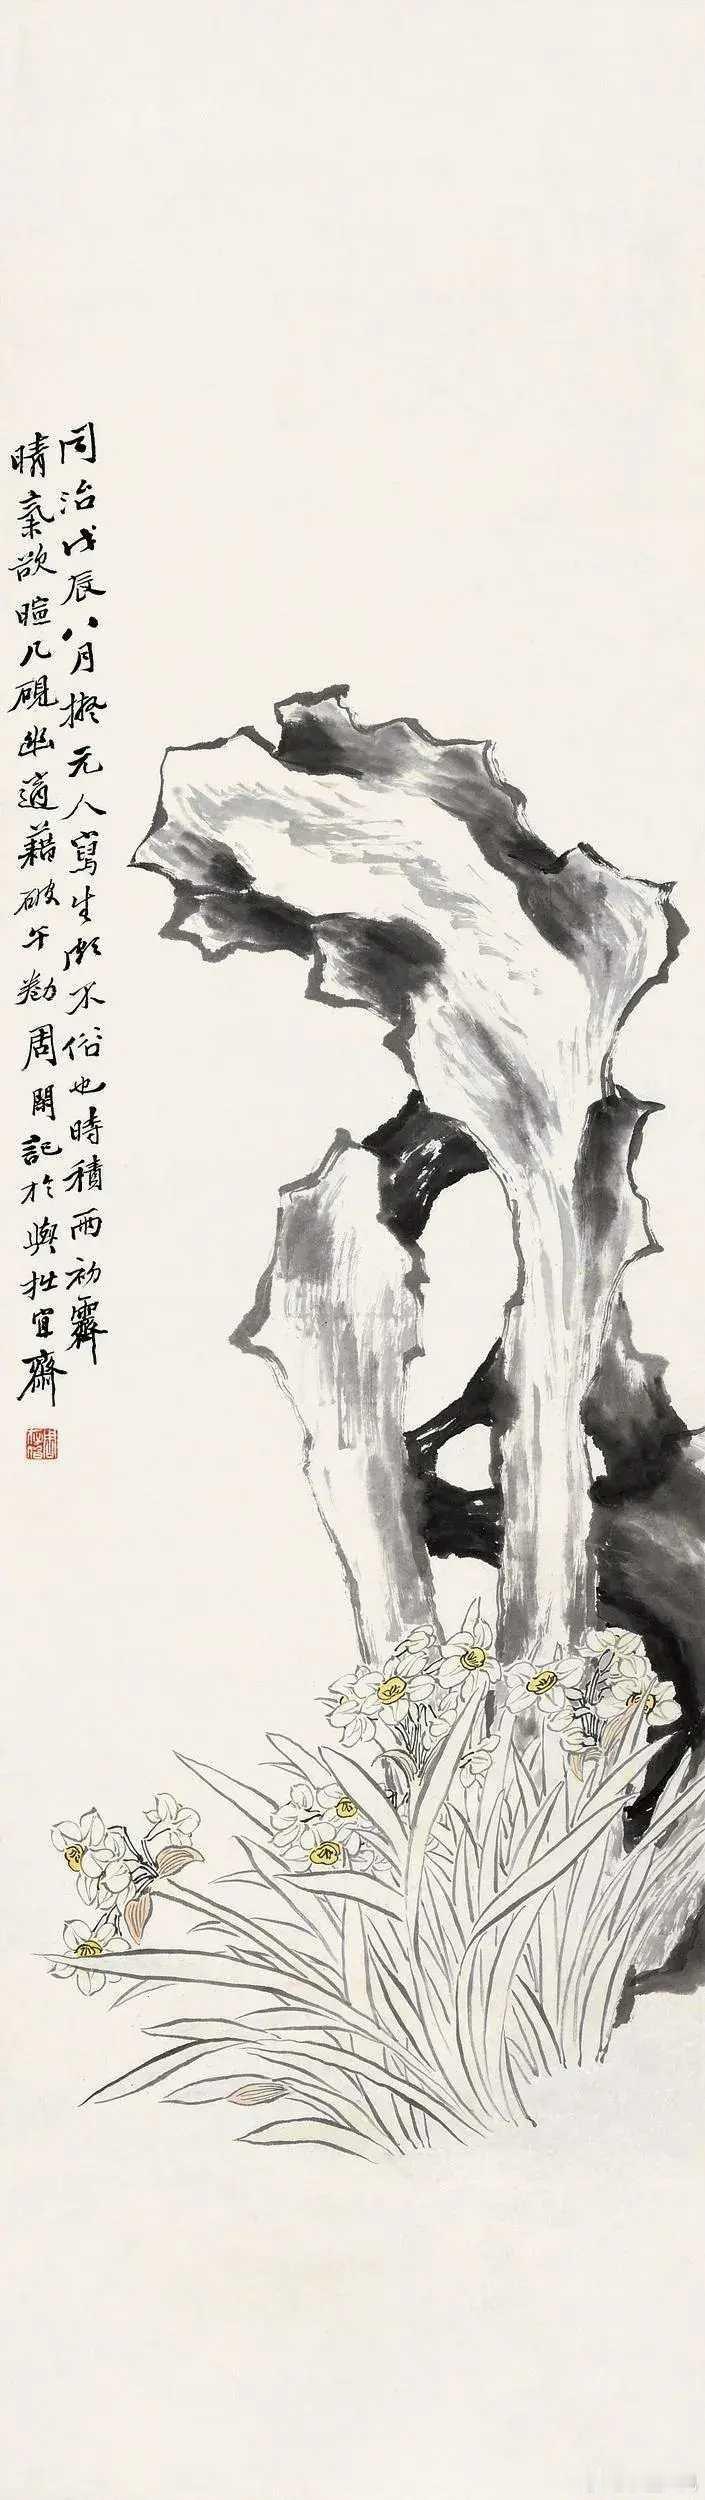 同治戊辰八月拟元人寫生頗不俗也時積雨初霽
晴氣欲暄几硯幽適藉破午勌周閑記於與拙宜齋